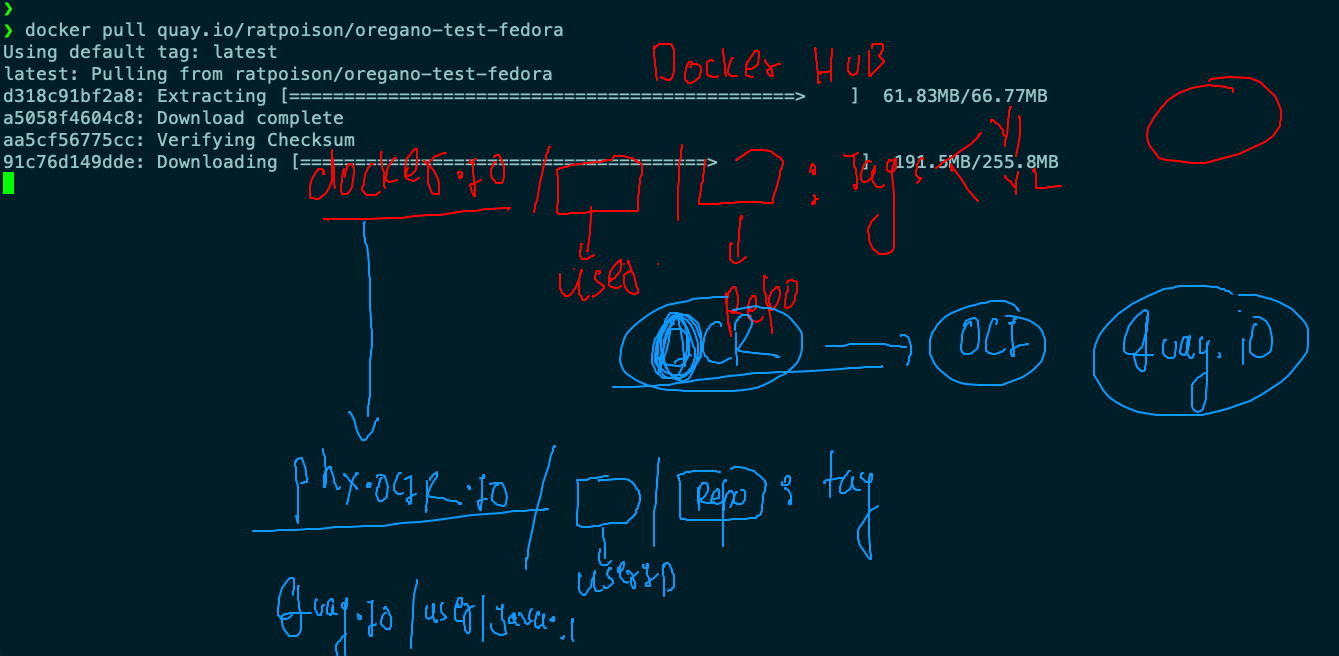 ❯
❯ docker pull quay.io/ratpoison/oregano-test-fedora
Using default tag: latest
latest: Pulling from ratpoison/oregano-test-fedora
d318c91bf2a8: Extracting [==============================================>    ]  61.83MB/66.77MB
a5058f4604c8: Download complete
aa5cf56775cc: Verifying Checksum
91c76d149dde: Downloading [=====================================>             ]  191.5MB/255.8MB
Docker HUB
docker.IO / / : Tags V1 V2
user Repo
OCR OCI Quay.iO
phx.OCIR.IO / / Repo : tag
userID
Quay.IO / user / java.1